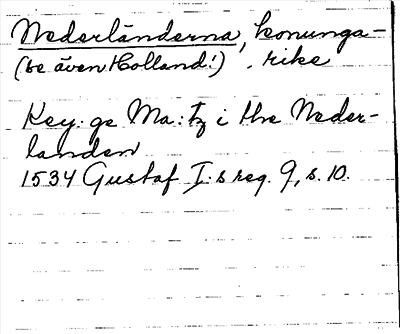 Nederländerna, konunga-
(se även Holland!) rike
Key: ge Ma:tz i the Neder-
landen
1534 Gustaf I:s reg. 9, s. 10.